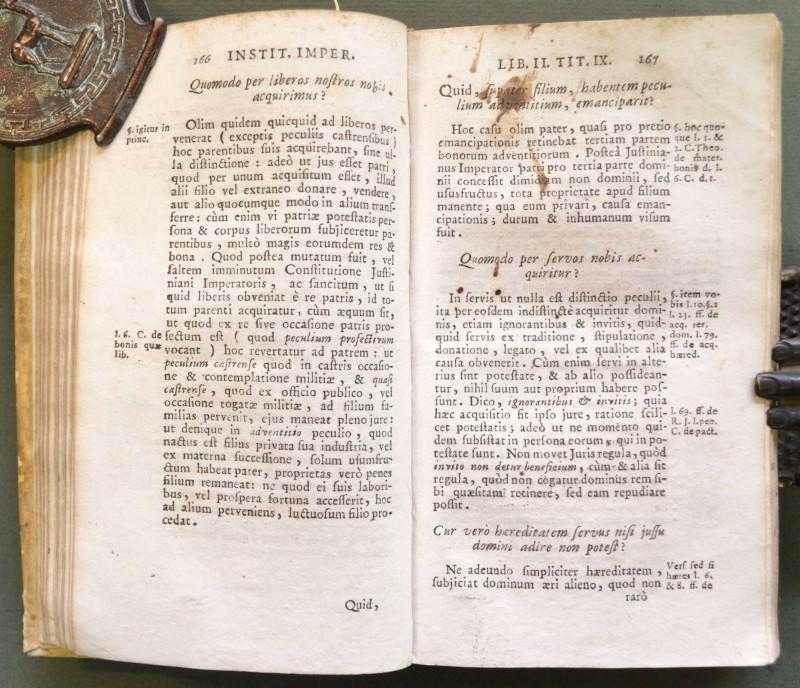 166 INSTIT. IMPER.
Quomodo per liberos noſtros nobis
acquirimus?
§. igitur in
princ.
Olim quidem quicquid ad liberos per-
venerat (exceptis peculiis caſtrenſibus)
hoc parentibus ſuis acquirebant, ſine ul-
la diſtinctione: adeò ut jus eſſet patri,
quod per unum acquiſitum eſſet, illud
alii filio vel extraneo donare, vendere,
aut alio quocumque modo in alium transf-
ferre: cùm enim vi patriæ poteſtatis per-
ſona & corpus liberorum ſubjiceretur pa-
rentibus, multò magis eorumdem res &
bona. Quod poſtea mutatum fuit, vel
ſaltem imminutum Conſtitutione Juſti-
niani Imperatoris, ac ſancitum, ut ſi
quid liberis obveniat è re patris, id to-
tum parenti acquiratur, cùm æquum ſit,
ut quod ex re ſive occaſione patris pro-
l. 6. C. de
bonis quæ
lib.
fectum eſt (quod peculium profectitium
vocant) hoc revertatur ad patrem: ut
peculium caſtrenſe quod in caſtris occaſio-
ne & contemplatione militiæ, & quaſi
caſtrenſe, quod ex officio publico, vel
occaſione togatæ militiæ, ad filium fa-
milias pervenit, ejus maneat pleno jure:
ut denique in adventitio peculio, quod
nactus eſt filius privata ſua induſtria, vel
ex materna ſucceſſione, ſolum uſumfru-
ctum habeat pater, proprietas verò penes
filium remaneat: ne quod ei ſuis labori-
bus, vel proſpera fortuna acceſſerit, hoc
ad alium perveniens, luctuoſum filio pro-
cedat.
Quid,
LIB. II. TIT. IX. 167
Quid, ſi pater filium, habentem pecu-
lium adventitium, emanciparit?
Hoc caſu olim pater, quaſi pro pretio
emancipationis retinebat tertiam partem
bonorum adventitiorum. Poſteà Juſtinia-
nus Imperator patri pro tertia parte domi-
nii conceſſit dimidiam non dominii, ſed
uſusfructus, tota proprietate apud filium
manente; qua eum privari, cauſa eman-
cipationis; durum & inhumanum viſum
fuit.
§. hoc quo-
que l. 1. &
2. C. Theo.
de mater.
bonis d. l.
6. C. d. t.
Quomodo per ſervos nobis ac-
quiritur?
In ſervis ut nulla eſt diſtinctio peculii,
ita per eosdem indiſtinctè acquiritur domi-
nis, etiam ignorantibus & invitis, quid-
quid ſervis ex traditione, ſtipulatione,
donatione, legato, vel ex qualibet alia
cauſa obvenerit. Cùm enim ſervi in alte-
rius ſint poteſtate, & ab alio poſſidean-
tur, nihil ſuum aut proprium habere poſ-
ſunt. Dico, ignorantibus & invitis; quia
hæc acquiſitio fit ipſo jure, ratione ſcili-
cet poteſtatis; adeò ut ne momento qui-
dem ſubſiſtat in perſona eorum, qui in po-
teſtate ſunt. Non movet Juris regula, quod
invito non detur beneficium, cùm & alia ſit
regula, quòd non cogatur dominus rem ſi-
bi quæſitam retinere, ſed eam repudiare
poſſit.
§. item vo-
bis l. 10. §. 1
l. 23. ff. de
acq. rer.
dom. l. 79.
ff. de acq.
hæred.
l. 69. ff. de
R. J. l. pen.
C. de pact.
Cur verò hæreditatem ſervus niſi juſſu
domini adire non poteſt?
Ne adeundo ſimpliciter hæreditatem,
ſubjiciat dominum æri alieno, quod non
Verſ ſed ſi
hæres l. 6.
& 8. ff. de
rarò